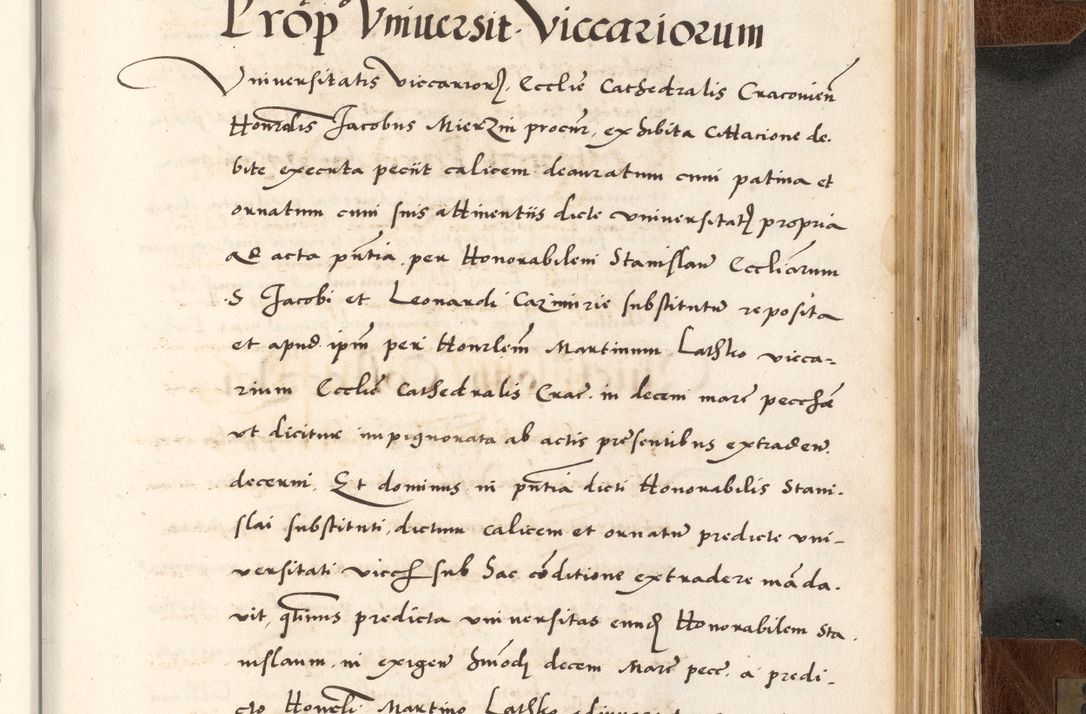 Pro p̄ Vniuersit. Viccariorum
Vniuersitatis viccarior. Ecclīe Cathedralis Cracouien̄
Honrālis Jacobus Mierzin procur̄, exhibita Cittacione de.
bite executa peciit calicem deauratum cum patina et
ornatum cum suis attinentiis dicte vniuersitat. propria
ad acta pn̄tia per Honorabilem Stanislaū Eccliārum
S Jacobi et Leonardi Cazimirie substitutū reposita
et apud ipm̄ per Honrlēm Martinum Lathko vicca-
rium Ecclīe Cathedralis Crac. in decem marc̄ pecchā
vt dicitur impignorata ab actis presentibus extraden̄.
decerni. Et dominus in pn̄tia dicti Honorabilis Stani.
slai substituti, dictum calicem et ornatū predicte vni-
versitati viccch sub hac cōditione extradere māda.
vit, qt̄inus predicta vniuersitas eund. Honorabilem Sta.
nislaum in exigen̄ hmōdi decem Marc̄ pecc. a predi-
cto Honrli Martino Lathko